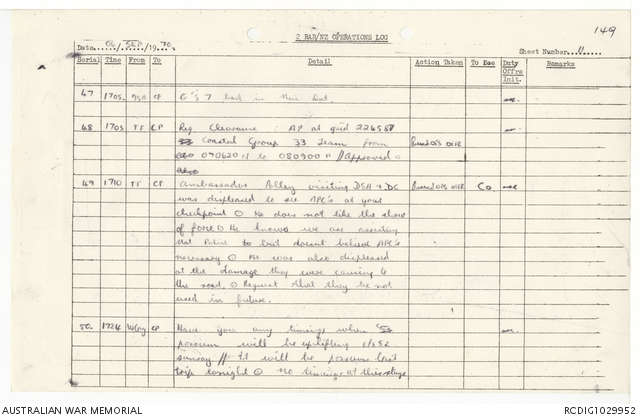 149
2 RAR/NZ OPERATIONS LOG
Date 06/SEP/1970
Sheet Number 11
Serial Time From To Detail Action Taken To See Duty Offrs Init. Remarks
47 1705 CP G's 7 back in their loc.
48 1705 TF CP Req Clearance : AP at grid 226587
Coastal Group 33 Team from
070620 H to 080900 H // Approved
49 1710 TF CP Ambassador visiting DSA + DC CO
was displeased to see APC's at your
checkpoint O He does not like the show
of force O He knows we are assisting
Nat Police to but doesnt believe APC's
necessary O He was also displeased
at the damage they were causing to
the road. O Request that they be not
used in future.
50 1724 CP Have you any timings when
possum will be uplifting
sunday // It will be possums last
trip tonight O No timings at this stage
AUSTRALIAN WAR MEMORIAL
RCDIG1029952